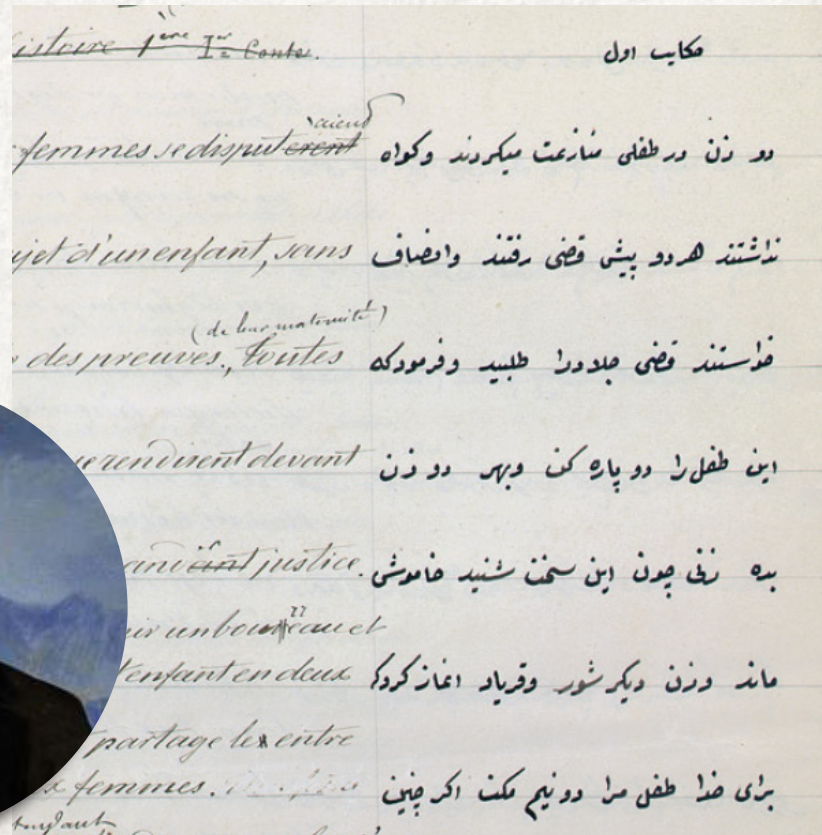 istoire 1ère Ier Conte.
aient
femmes se disputèrent
ujet d'un enfant, sans
(de leur maternité)
des preuves, toutes
se rendirent devant
justice.
un bourreau et
l'enfant en deux
partage les entre
x femmes.
حکایت اول
دو زن در طفلی منازعت میکردند وکواه
نداشتند هردو پیش قضی رفتند وانصاف
خواستند قضی جلادرا طلبید وفرمودکه
این طفل را دو پاره کن وبهر دو زن
بده زنی چون این سخن شنید خاموش
ماند وزن دیکر شور وفریاد اغاز کردکه
برای خدا طفل مرا دونیم مکن اکر چنین